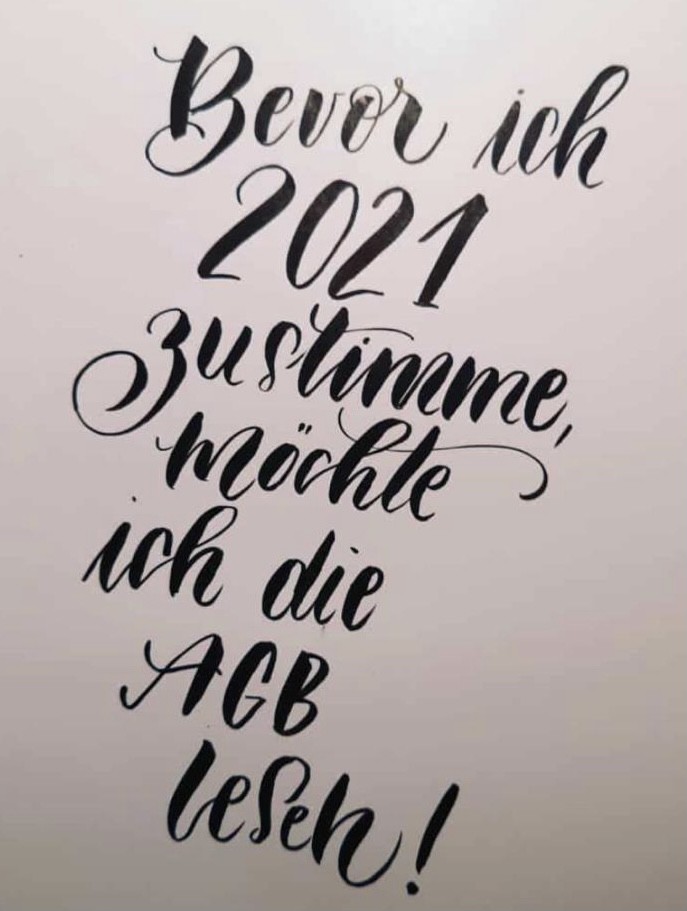 Bevor ich
2021
zustimme,
möchte
ich die
AGB
lesen!